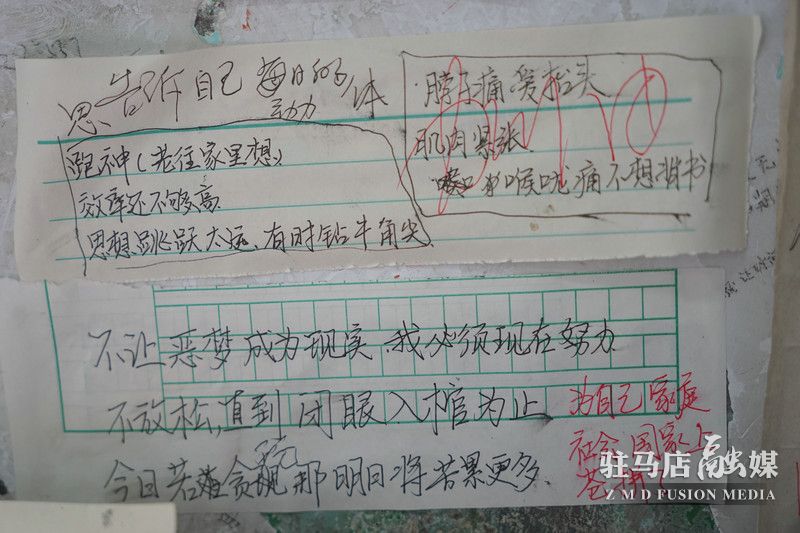 告诉自己 每日的
思 动力 体
跑神(老往家里想)
效率还不够高
思想跳跃太远、有时钻牛角尖
脖子痛 爱抬头
肌肉紧张
喉咙痛不想背书
不让恶梦成为现实、我必须现在努力
不放松,直到闭眼入棺为止
今日若贪玩那明日将苦果更多、
为自己 家庭
社会 国家 上
苍
驻马店融媒
ZMD FUSION MEDIA